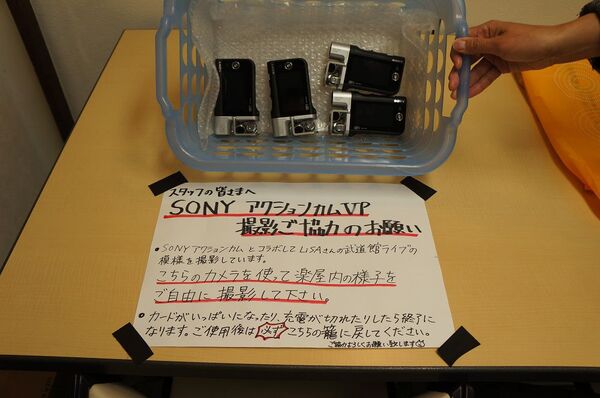 スタッフの皆さまへ
SONY アクションカムVP
撮影ご協力のお願い
• SONYアクションカムとコラボしてLiSAさんの武道館ライブの
模様を撮影しています。
こちらのカメラを使って楽屋内の様子を
ご自由に撮影して下さい。
• カードがいっぱいになったり、充電が切れたりしたら終了に
なります。ご使用後は必ずこちらの籠に戻してください。
ご協力よろしくお願い致します